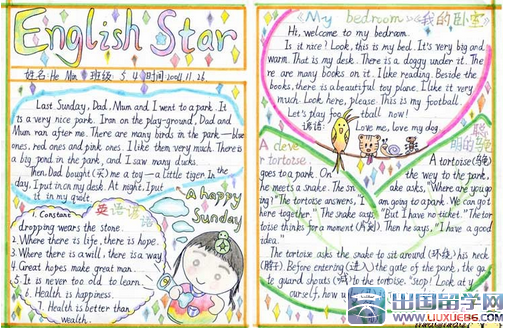 English Star
姓名:He Min 班级:5.4 时间:2011.11.26
Last Sunday, Dad, Mum and I went to a park. It
is a very nice park. I ran on the play-ground, Dad and
Mum ran after me. There are many birds in the park—blue
ones, red ones and pink ones. I like then very much. There is
a big pond in the park, and I saw many ducks.
Then, Dad bought(买) me a toy—a little tiger. In the
day, I put it on my desk. At night, I put
it in my quilt.
A happy
Sunday
英语谚语
1. Constant
dropping wears the stone.
2. Where there is life, there is hope.
3. Where there is a will, there is a way
4. Great hopes make great man.
5. It is never too old to learn.
6. Health is happiness.
7. Health is better than
wealth.
《My bedroom》《我的卧室》
Hi, welcome to my bedroom.
Is it nice? Look, this is my bed. It's very big and
warm. That is my desk. There is a doggy under it. The
re are many books on it. I like reading. Beside the
books, there is a beautiful toy plane. I like it very
much. Look here, please. This is my football.
Let's play football now!
谚语: Love me, love my dog.
A clever tortoise
聪明的龟
A tortoise(龟)
goes to a park. On the way to the park,
he meets a snake. The snake asks, "Where are you go
ing?" The tortoise answers, "I am going to a park. We can go t
here together." The snake says, "But I have no ticket." The tor
toise thinks for a moment(片刻). Then he says, "I have a good
idea."
The tortoise asks the snake to sit around(环绕) his neck
(脖子). Before entering(进入) the gate of the park, the ga
te guard shouts(喊) to the tortoise, "stop! Look at y
ourself, how
出国留学网
WWW.LIUXUE86.COM